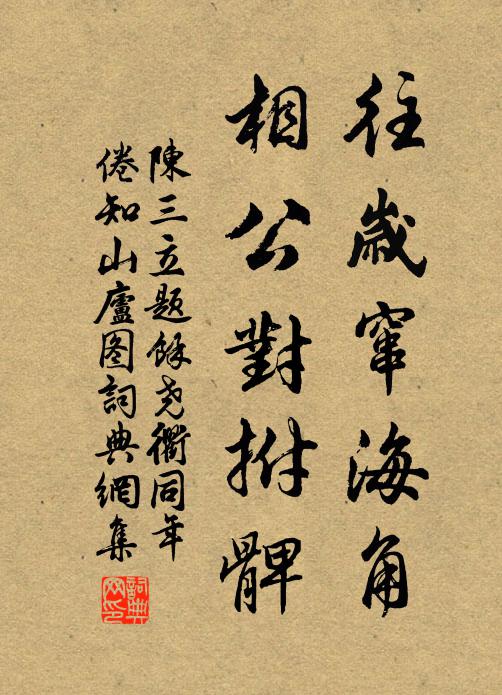 往歲窜海角
相公對拊髀
陳三立题馀尧衢同年
倦知山廬图詞典網集
詞典网印